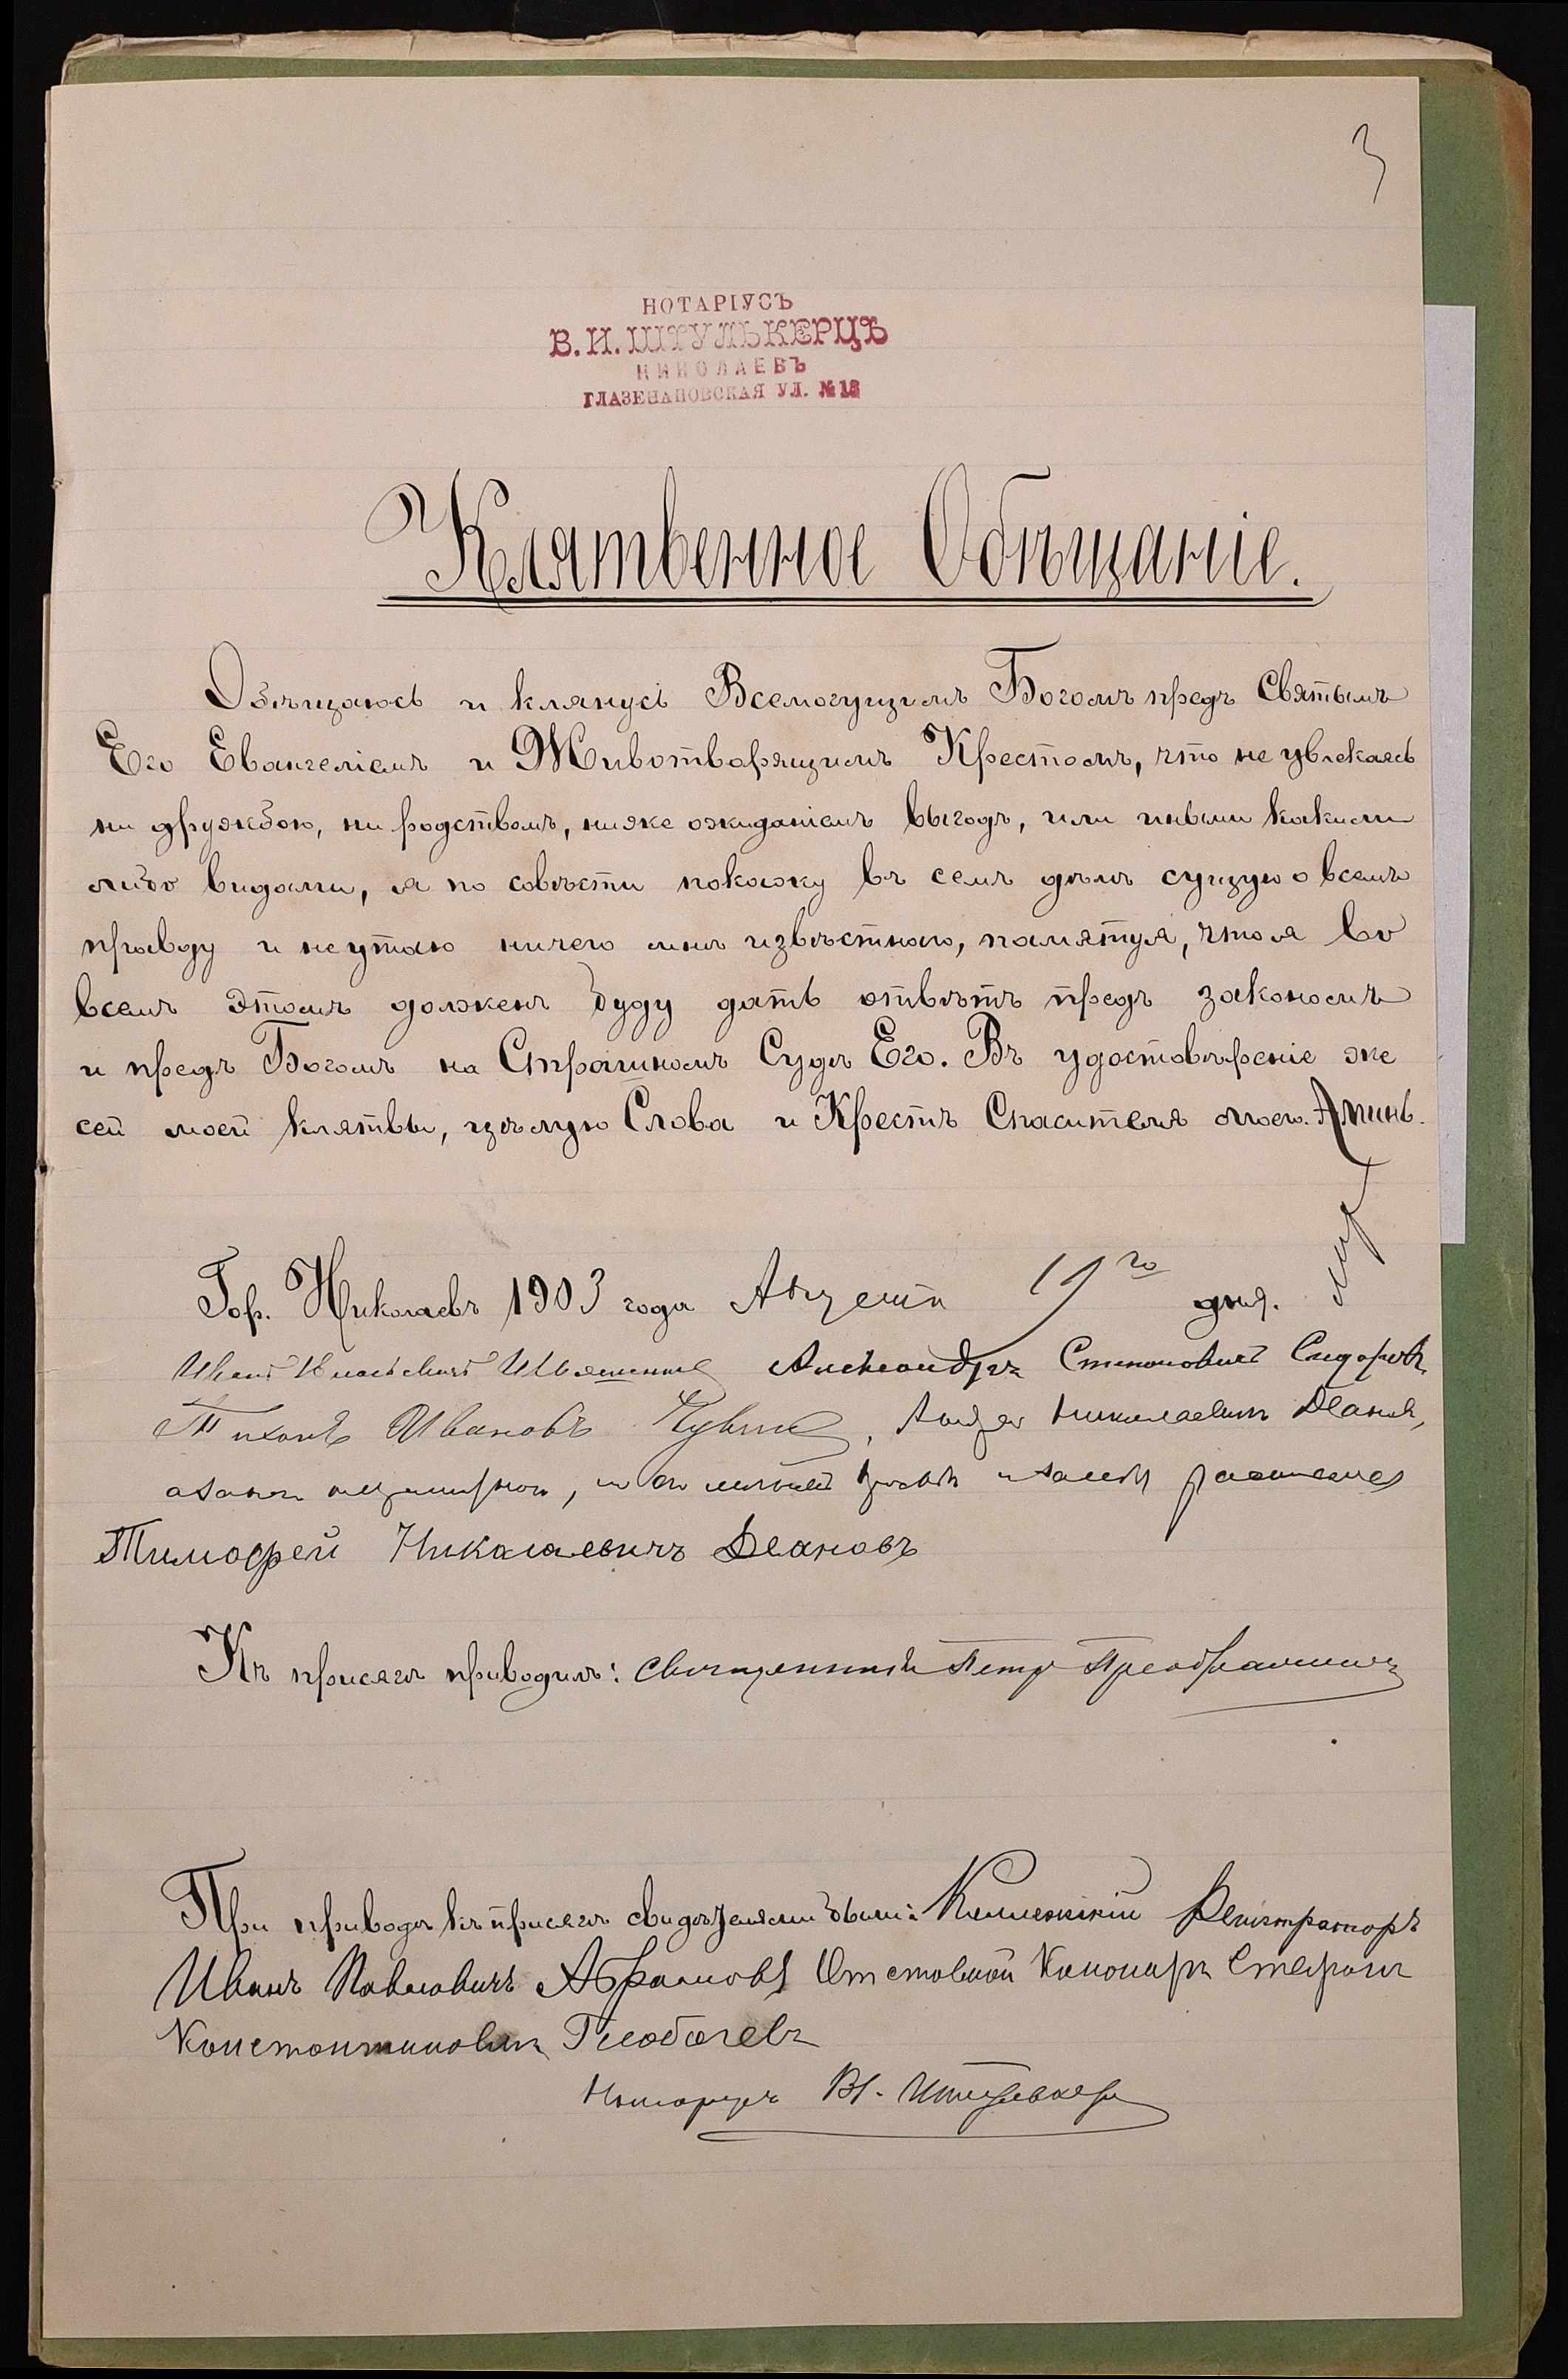 3
НОТАРІУСЪ
В. И. ШТУЛЬКЕРЦЪ
НИКОЛАЕВЪ
ГЛАЗЕНАПОВСКАЯ УЛ. № 18
Клятвенное Обѣщаніе.
Обѣщаюсь и клянусь Всемогущимъ Богомъ предъ Святымъ
Его Евангеліемъ и Животворящимъ Крестомъ, что не увлекаясь
ни дружбою, ни родствомъ, ниже ожиданіемъ выгодъ, или иными какими
либо видами, я по совѣсти покажу въ семъ дѣлѣ сущую о всемъ
правду и не утаю ничего мнѣ извѣстнаго, памятуя, что я во
всемъ этомъ долженъ буду дать отвѣтъ предъ закономъ
и предъ Богомъ на Страшномъ Судѣ Его. Въ удостовѣреніе же
сей моей клятвы, цѣлую Слова и Крестъ Спасителя моего. Аминь.
Гор. Николаевъ 1903 года Августа 19го дня.
Иванъ Александръ Степановичъ Сидоровъ
Тихонъ Ивановъ Николаевичъ Деановъ,
Тимофей Николаевичъ Деановъ
Къ присягѣ приводилъ: Священникъ Петръ
При приводѣ къ присягѣ свидѣтелями были: Коллежскій Регистраторъ
Иванъ Павловичъ Абрамовъ Отставной Канониръ Стефанъ
Константиновичъ
Нотаріусъ В. Штулькерцъ